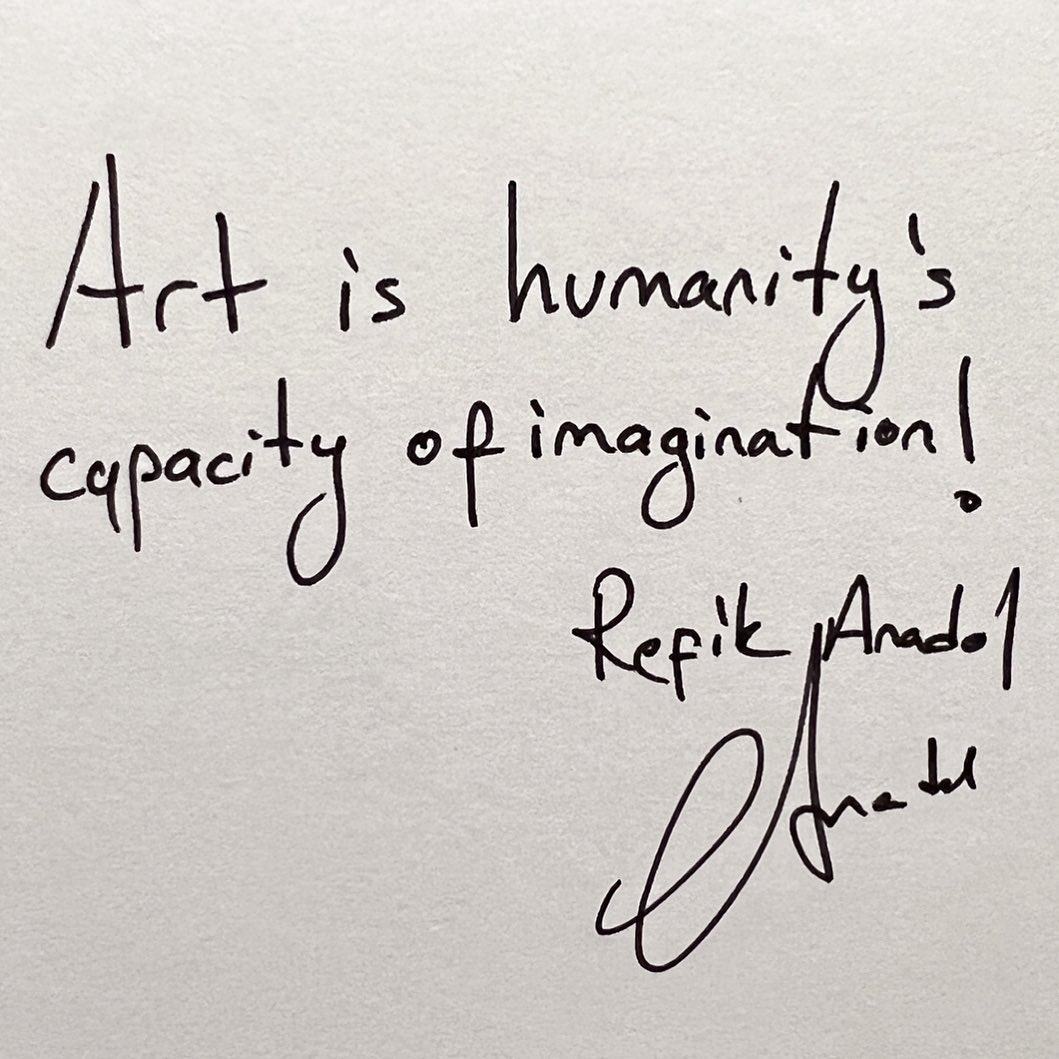 Art is humanity's
capacity of imagination!
Refik Anadol
Anadol